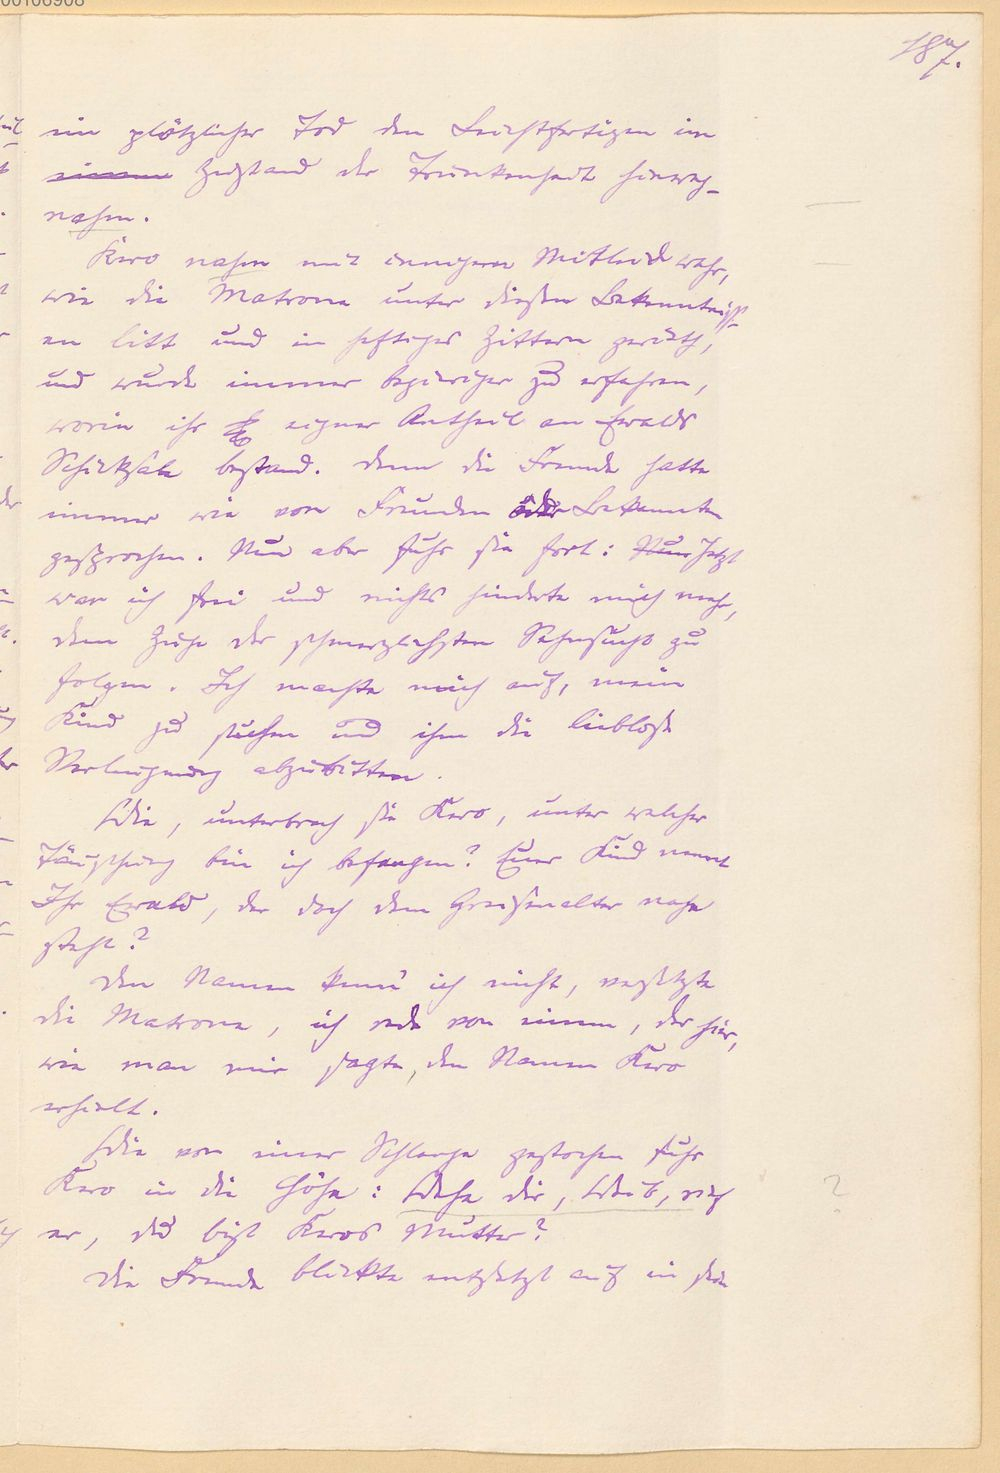 187.
ein plötzlicher Tod den Leichtfertigen im
einem Zustand der Trunkenheit hinweg-
nahm.
Kero nahm mit innigem Mitleid wahr,
wie die Matrone unter diesen Bekenntniss-
en litt und in heftiges Zittern gerieth,
und wurde immer begieriger zu erfahren,
worin ihr eigner Antheil an Ewalds
Schicksale bestand. Denn die Fremde hatte
immer wie von Freunden oder Bekannten
gesprochen. Nun aber fuhr sie fort: Nun Jetzt
war ich frei und nichts hinderte mich mehr,
dem Zuge der schmerzlichsten Sehnsucht zu
folgen. Ich machte mich auf, mein
Kind zu suchen und ihm die lieblose
Verleugnung abzubitten.
Wie, unterbrach sie Kero, unter welcher
Täuschung bin ich befangen? Euer Kind nennt
Ihr Ewald, der doch dem Greisenalter nahe
steht?
Den Namen kenn' ich nicht, versetzte
die Matrone, ich rede von einem, der hier,
wie man mir sagte, den Namen Kero
erhielt.
Wie von einer Schlange gestochen fuhr
Kero in die Höhe: Wehe dir, Weib, rief
er, du bist Keros Mutter?
Die Fremde blickte entsetzt auf in sein